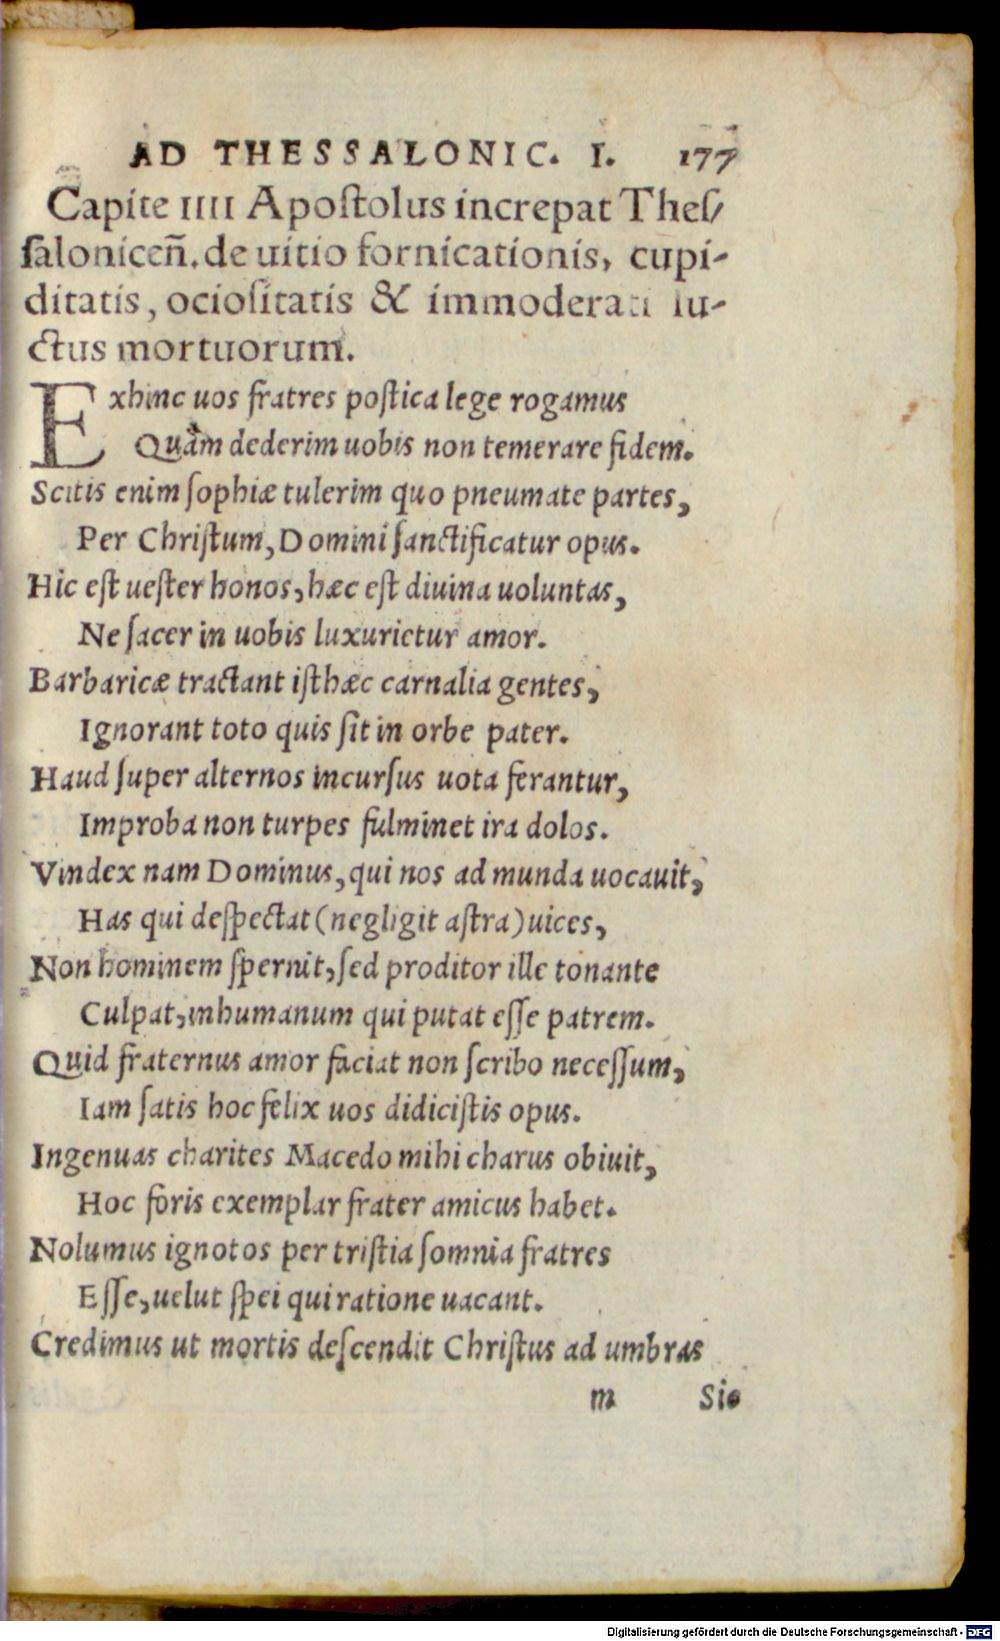 AD THESSALONIC. I. 177
Capite IIII Apoſtolus increpat Theſ-
ſaloniceñ. de uitio fornicationis, cupi-
ditatis, ocioſitatis & immoderati lu-
ctus mortuorum.
Exhinc uos fratres poſtica lege rogamus
Quàm dederim uobis non temerare fidem.
Scitis enim ſophiæ tulerim quo pneumate partes,
Per Chriſtum, Domini ſanctificatur opus.
Hic eſt ueſter honos, hæc eſt diuina uoluntas,
Ne ſacer in uobis luxurietur amor.
Barbaricæ tractant iſthæc carnalia gentes,
Ignorant toto quis ſit in orbe pater.
Haud ſuper alternos incurſus uota ferantur,
Improba non turpes fulminet ira dolos.
Vindex nam Dominus, qui nos ad munda uocauit,
Has qui deſpectat (negligit aſtra) uices,
Non hominem ſpernit, ſed proditor ille tonante
Culpat, inhumanum qui putat eſſe patrem.
Quid fraternus amor faciat non ſcribo neceſſum,
Iam ſatis hoc felix uos didiciſtis opus.
Ingenuas charites Macedo mihi charus obiuit,
Hoc foris exemplar frater amicus habet.
Nolumus ignotos per triſtia ſomnia fratres
Eſſe, uelut ſpei qui ratione uacant.
Credimus ut mortis deſcendit Chriſtus ad umbras
m Sic
Digitalisierung gefördert durch die Deutsche Forschungsgemeinschaft - DFG